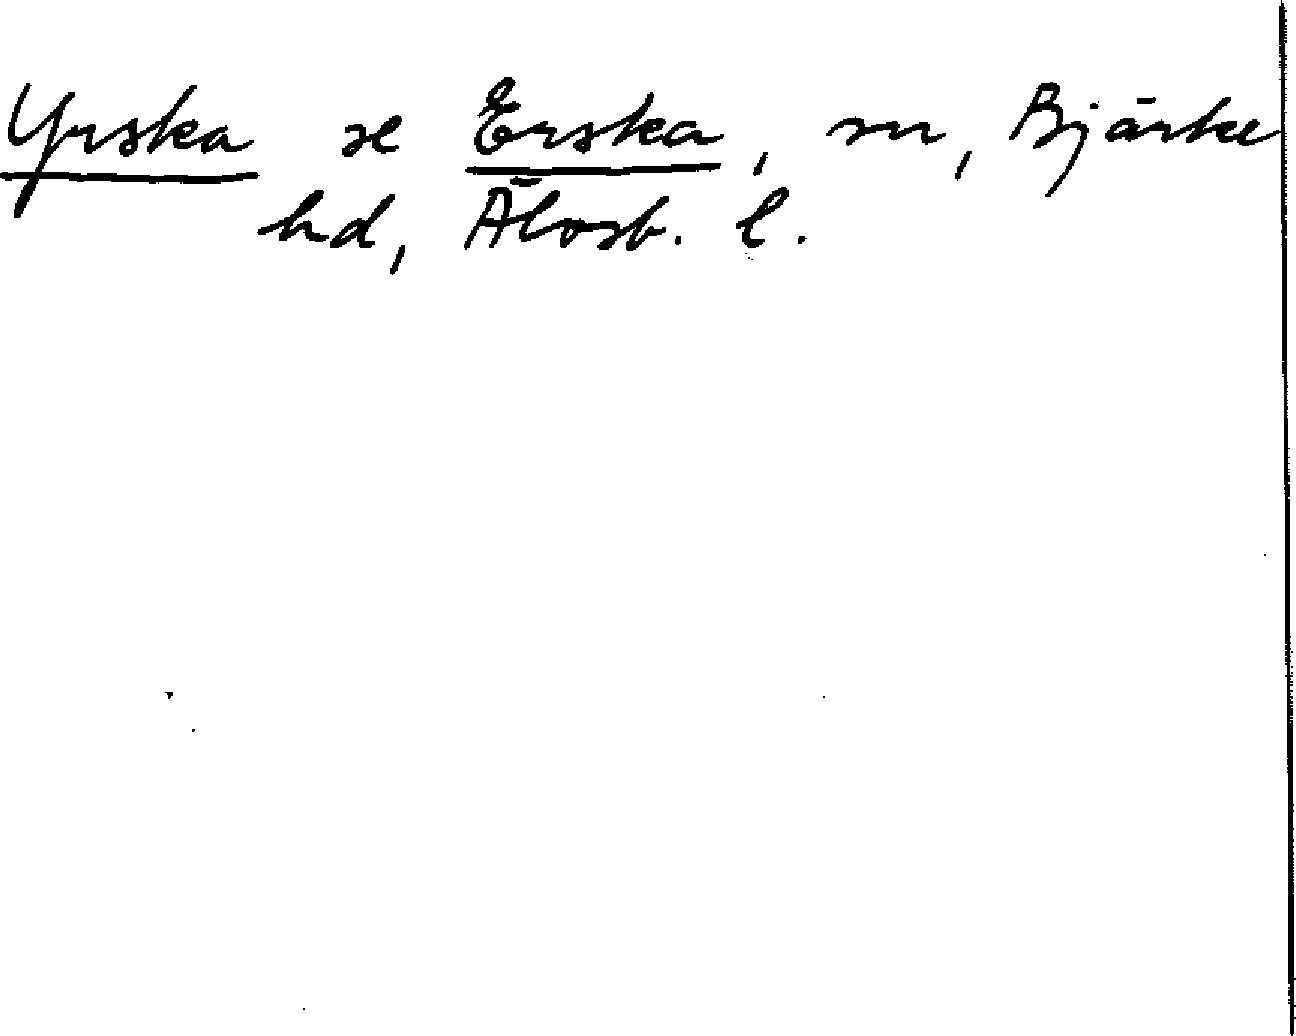 Yrska se Erska, sn, Bjärke
hd, Älvsb. l.